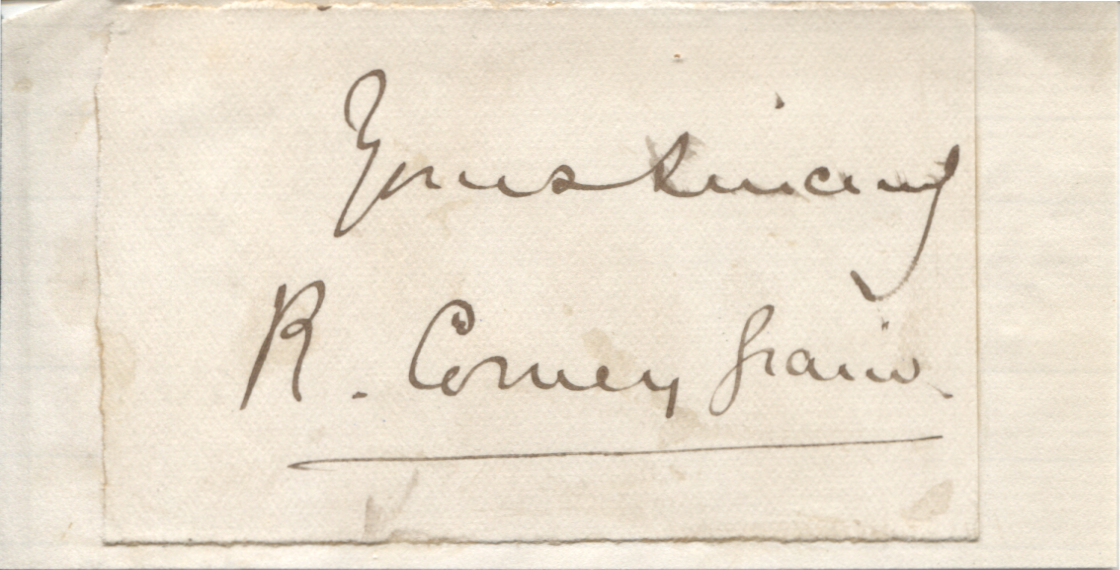 Yours sincerely
R. Corney Grain